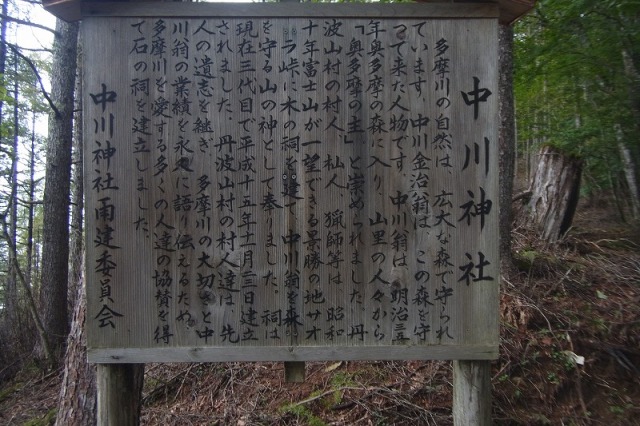 中川神社
多摩川の自然は、広大な森で守られ
ています。中川金治翁は、この森を守
って来た人物です。中川翁は、明治三
年奥多摩の森に入り、山里の人々から
「奥多摩の主」と崇められました。丹
波山村の村人、杣人、猟師等は、昭和
十年富士山が一望できる景勝の地サオ
ラ峠に木の祠を建て、中川翁を森
を守る山の神として奉りました。祠は
現在三代目で平成十五年十一月三日建立
されました。丹波山村の村人達は、先
人の遺志を継ぎ、多摩川の大切さと中
川翁の業績を永久に語り伝えるため、
多摩川を愛する多くの人達の協賛を得
て石の祠を建立しました。
中川神社再建委員会